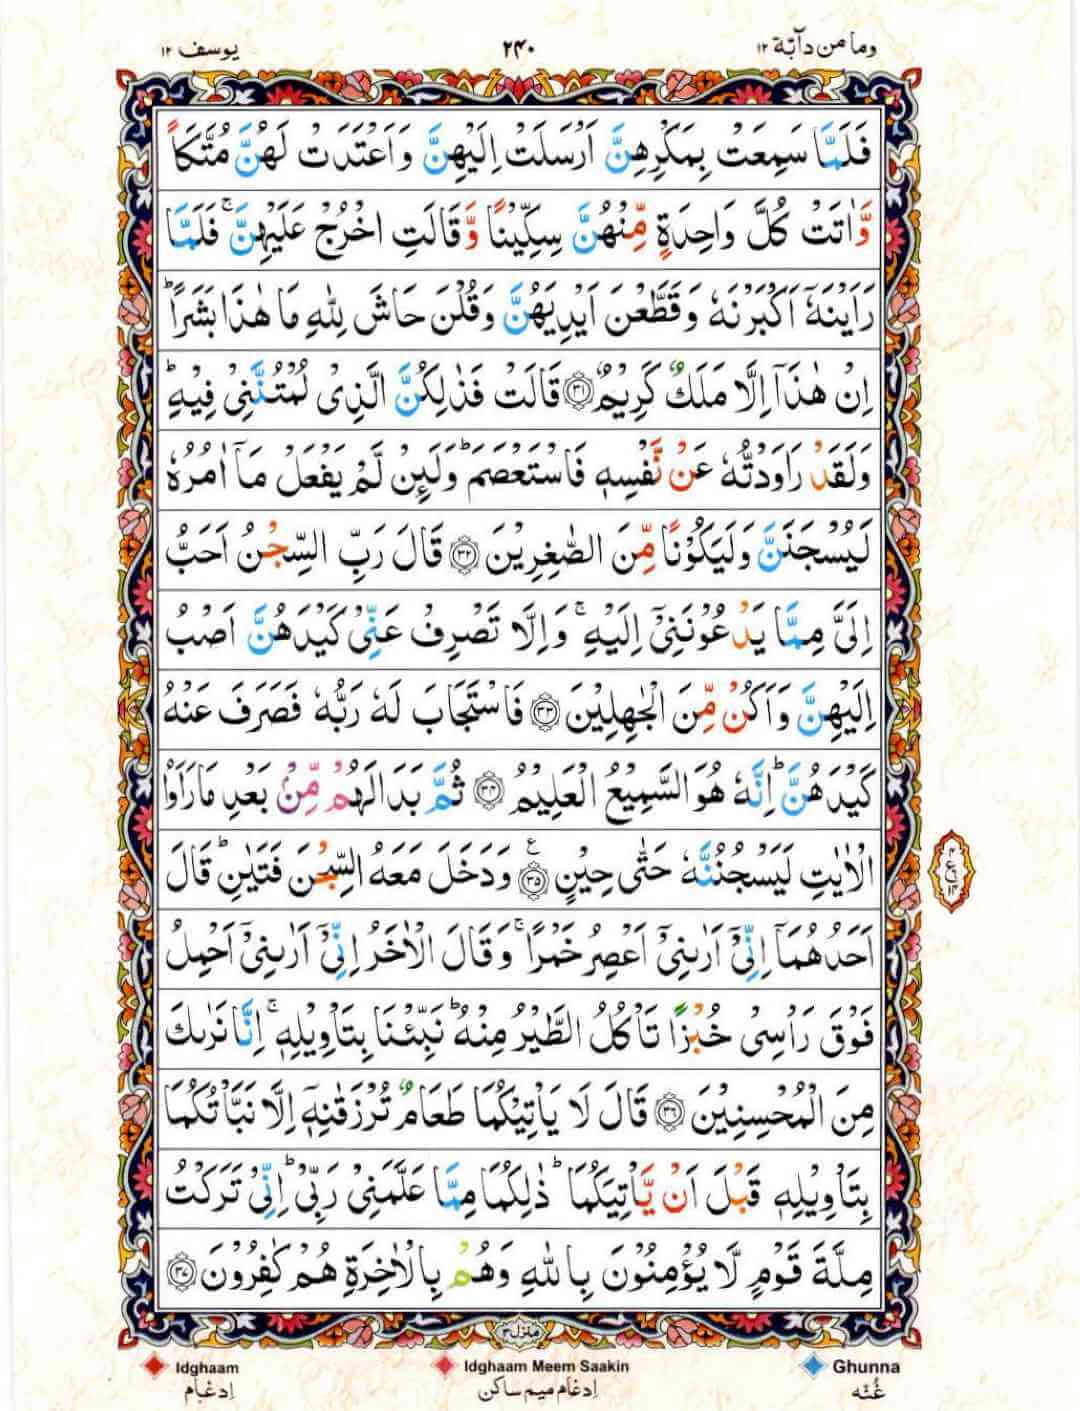 وما من دآبّة ١٢
٢٤٠
یوسف ١٢
فَلَمَّا سَمِعَتْ بِمَكْرِهِنَّ اَرْسَلَتْ اِلَیْهِنَّ وَاَعْتَدَتْ لَهُنَّ مُتَّكَاً
وَّاٰتَتْ كُلَّ وَاحِدَةٍ مِّنْهُنَّ سِكِّیْنًا وَّقَالَتِ اخْرُجْ عَلَیْهِنَّ ۚ فَلَمَّا
رَاَیْنَهٗۤ اَكْبَرْنَهٗ وَقَطَّعْنَ اَیْدِیَهُنَّ وَقُلْنَ حَاشَ لِلّٰهِ مَا هٰذَا بَشَرًا ؕ
اِنْ هٰذَاۤ اِلَّا مَلَكٌ كَرِیْمٌ ﴿٣١﴾ قَالَتْ فَذٰلِكُنَّ الَّذِیْ لُمْتُنَّنِیْ فِیْهِ ؕ
وَلَقَدْ رَاوَدْتُّهٗ عَنْ نَّفْسِهٖ فَاسْتَعْصَمَ ؕ وَلَىِٕنْ لَّمْ یَفْعَلْ مَاۤ اٰمُرُهٗ
لَیُسْجَنَنَّ وَلَیَكُوْنًا مِّنَ الصّٰغِرِیْنَ ﴿٣٢﴾ قَالَ رَبِّ السِّجْنُ اَحَبُّ
اِلَیَّ مِمَّا یَدْعُوْنَنِیْۤ اِلَیْهِ ۚ وَاِلَّا تَصْرِفْ عَنِّیْ كَیْدَهُنَّ اَصْبُ
اِلَیْهِنَّ وَاَكُنْ مِّنَ الْجٰهِلِیْنَ ﴿٣٣﴾ فَاسْتَجَابَ لَهٗ رَبُّهٗ فَصَرَفَ عَنْهُ
كَیْدَهُنَّ ؕ اِنَّهٗ هُوَ السَّمِیْعُ الْعَلِیْمُ ﴿٣٤﴾ ثُمَّ بَدَا لَهُمْ مِّنْۢ بَعْدِ مَا رَاَوُا
الْاٰیٰتِ لَیَسْجُنُنَّهٗ حَتّٰی حِیْنٍ ﴿٣٥﴾ ع وَدَخَلَ مَعَهُ السِّجْنَ فَتَیٰنِ ؕ قَالَ
اَحَدُهُمَاۤ اِنِّیْۤ اَرٰىنِیْۤ اَعْصِرُ خَمْرًا ۚ وَقَالَ الْاٰخَرُ اِنِّیْۤ اَرٰىنِیْۤ اَحْمِلُ
فَوْقَ رَاْسِیْ خُبْزًا تَاْكُلُ الطَّیْرُ مِنْهُ ؕ نَبِّئْنَا بِتَاْوِیْلِهٖ ۚ اِنَّا نَرٰىكَ
مِنَ الْمُحْسِنِیْنَ ﴿٣٦﴾ قَالَ لَا یَاْتِیْكُمَا طَعَامٌ تُرْزَقٰنِهٖۤ اِلَّا نَبَّاْتُكُمَا
بِتَاْوِیْلِهٖ قَبْلَ اَنْ یَّاْتِیَكُمَا ؕ ذٰلِكُمَا مِمَّا عَلَّمَنِیْ رَبِّیْ ؕ اِنِّیْ تَرَكْتُ
مِلَّةَ قَوْمٍ لَّا یُؤْمِنُوْنَ بِاللّٰهِ وَهُمْ بِالْاٰخِرَةِ هُمْ كٰفِرُوْنَ ﴿٣٧﴾
منزل ٣
Idghaam
Idghaam Meem Saakin
Ghunna
اِدغام
اِدغام میم ساکن
غُنّه